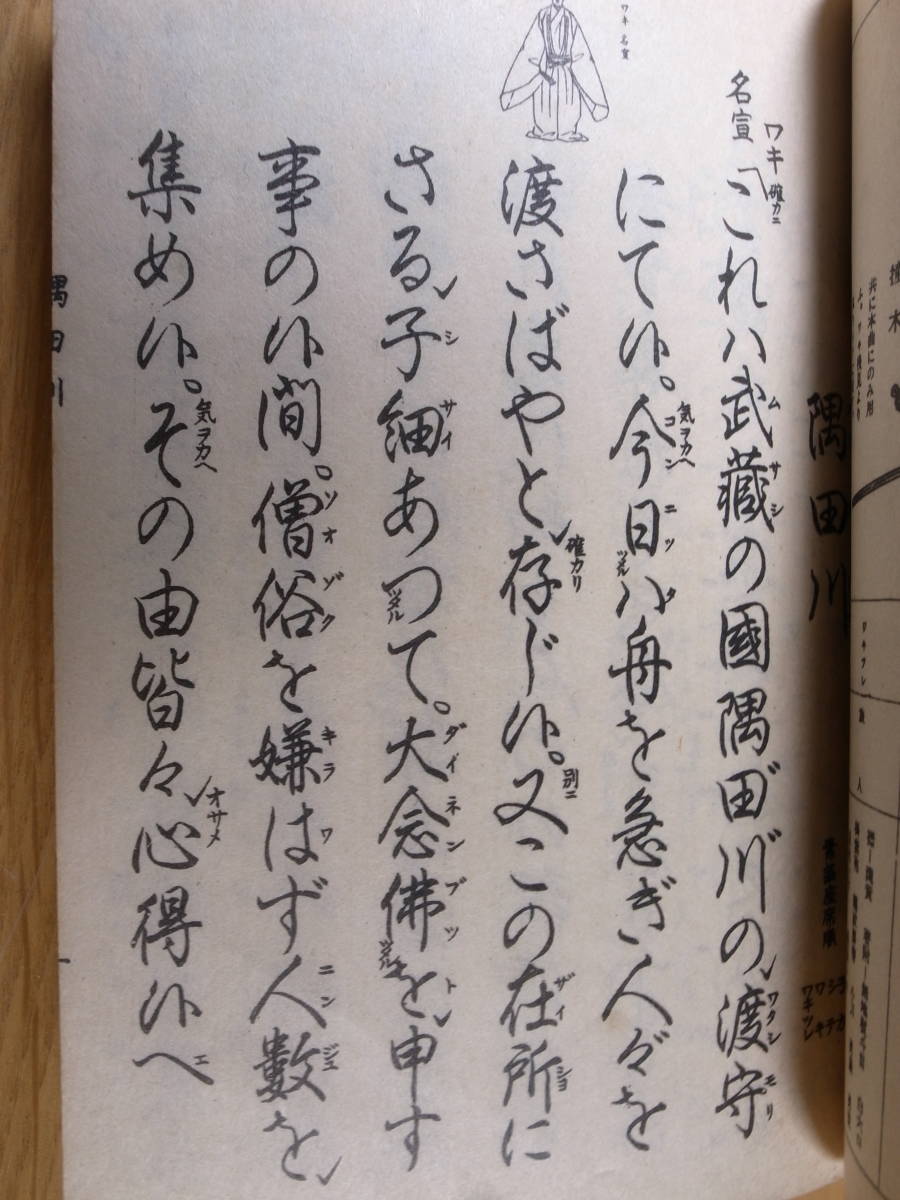 隅田川
名宣
ワキ 確カニ
これハ武藏の國隅田川の渡守
にて候。今日ハ舟を急ぎ人々を
渡さばやと存じ候。又この在所に
さる子細あつて。大念佛を申す
事の候間。僧俗を嫌はず人數を
集め候。その由皆々心得候へ
ワキ 名宣
隅田川
一